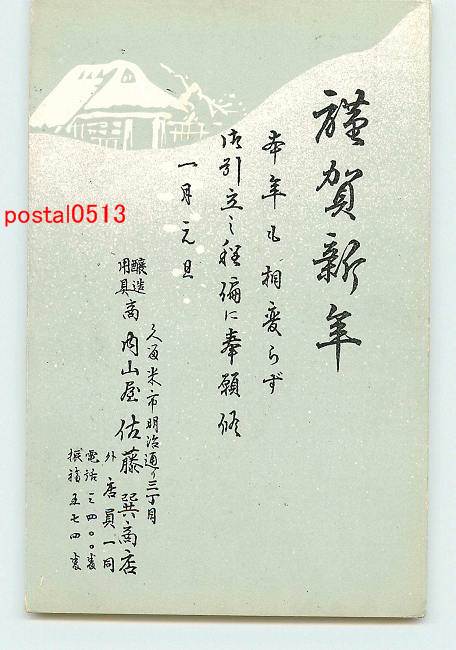 謹賀新年
本年も相変らず
御引立之程偏に奉願候
一月元旦
久留米市明治通り三丁目
醸造用具商 内山屋 佐藤巽商店
外店員一同
電話二四〇〇番
振福五七四番
postal0513